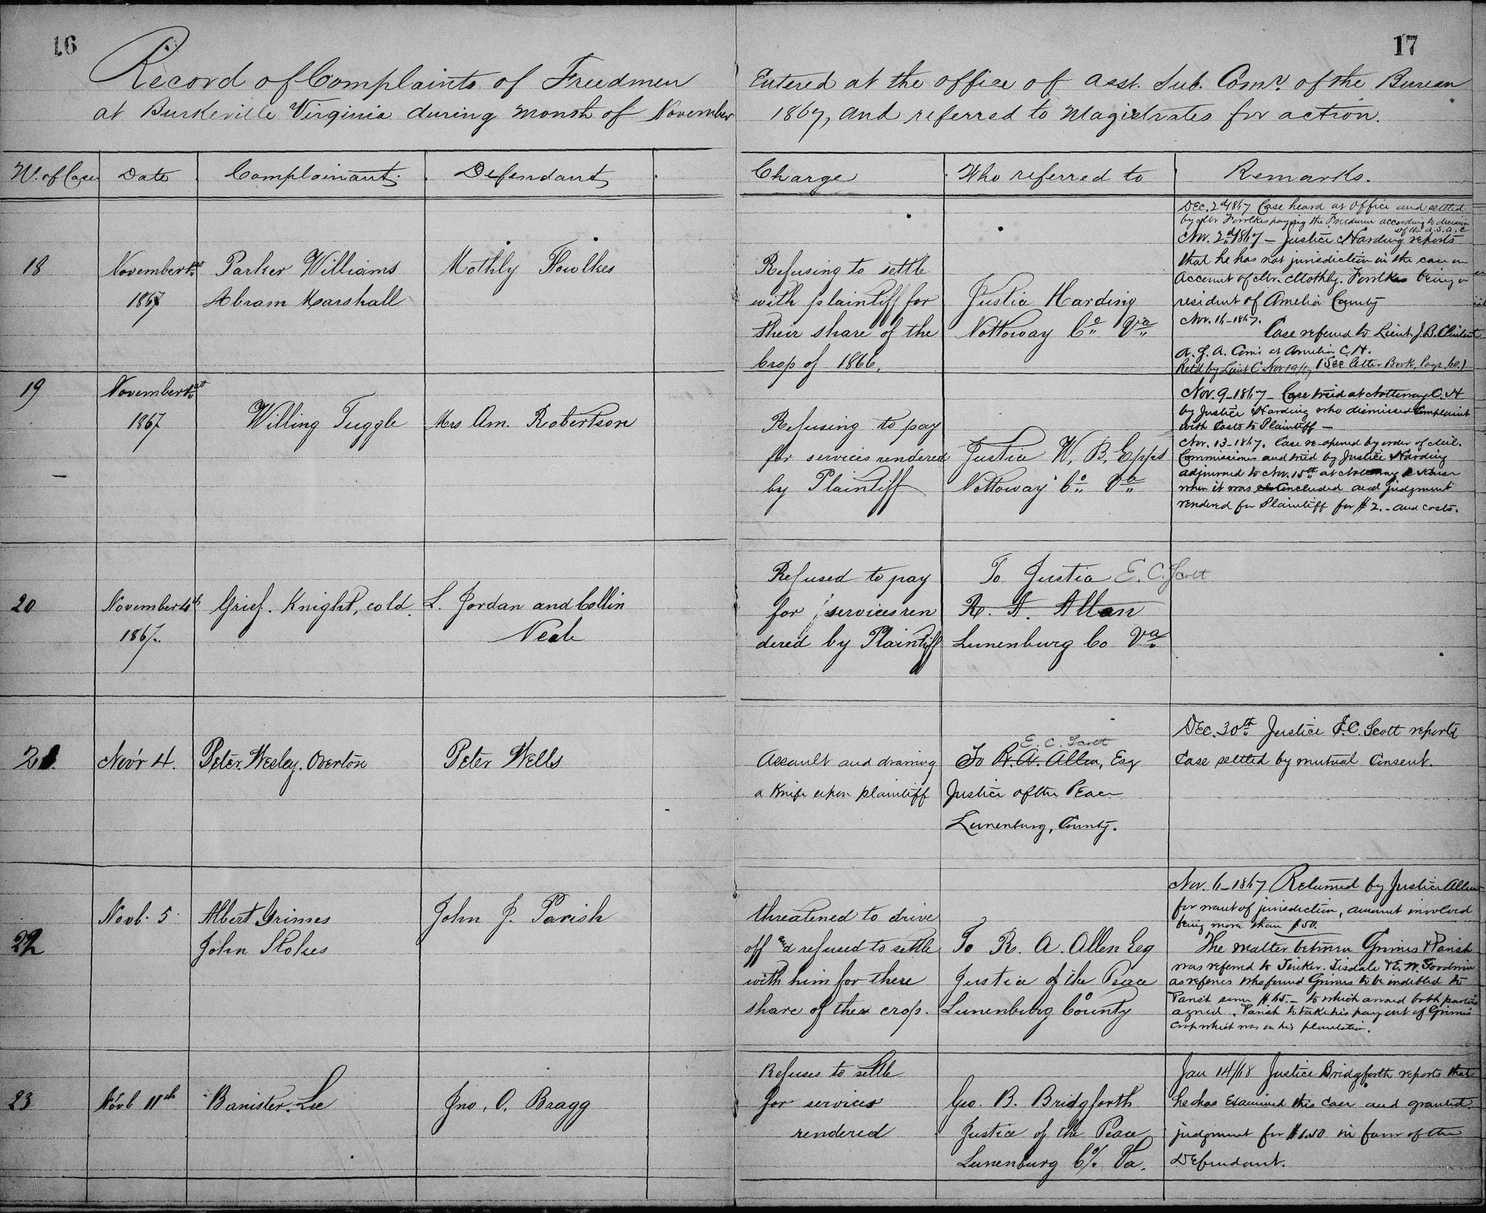 16
17
Record of Complaints of Freedmen Entered at the office of asst. Sub. Comr. of the Bureau
at Burkeville Virginia during month of November 1867, and referred to Magistrates for action.
No. of Case
Date
Complainant
Defendant
Charge
Who referred to
Remarks.
18
November 1st
1867
Parker Williams
Abram Marshall
Mothly Fowlkes
Refusing to settle
with plaintiff for
their share of the
Crop of 1866.
Justice Harding
Nottoway Co. Va
Dec. 2d 1867 Case heard at Office and settled
by Mr Fowlkes paying the Freedmen according to decision
of the A.S.A.C.
Nov. 2d 1867 – Justice Harding reports
that he has not jurisdiction in the case on
account of Mr. Mothly. Fowlkes being a
resident of Amelia County
Nov. 16–1867.
Case referred to Lieut J.B. Clinton
A. S. A. Com'r at Amelia C.H.
Retd by Lieut C. Nov 19/67 (See Letter Book, Page 60.)
19
November 1st
1867
Willing Tuggle
Mrs Am. Robertson
Refusing to pay
for services rendered
by Plaintiff
Justice W. B. Epps
Nottoway Co. Va
Nov. 9–1867 – Case tried at Nottoway C.H
by Justice Harding who dismissed Complaint
with Costs to Plaintiff –
Nov. 13–1867. Case re-opened by order of Mil.
Commissioner and tried by Justice Harding
adjourned to Nov. 15th at Nottoway C. House
when it was concluded and judgment
rendered for Plaintiff for $2.– and costs.
20
November 4th
1867.
Grief. Knight, cold
L. Jordan and Collin
Neal
Refused to pay
for services ren
dered by Plaintiff
To Justice E. C. Scott
R. A. Allen
Lunenburg Co Va
21.
Nov'r 4.
Peter. Wesley. Overton
Peter Wells
Assault and drawing
a Knife upon plaintiff
E. C. Scott
To R. A. Allen, Esq
Justice of the Peace
Lunenburg, County.
Dec. 30th Justice E.C. Scott reports
Case settled by mutual Consent.
22
Novb. 5
Albert Grimes
John Stokes
John J. Parish
threatened to drive
off & refused to settle
with him for there
share of the crop.
To R. A. Allen Esq
Justice of the Peace
Lunenburg County
Nov. 6–1867 Returned by Justice Allen
for want of jurisdiction, amount involved
being more than $50.
The matter between Grimes & Parish
was referred to Tisdale & E. W. Goodwin
as referees who found Grimes to be indebted to
Parish sum $65.– to which award both parties
agreed, Parish to take his pay out of Grimes
Crop which was on his plantation.
23
Novb 11th
Banister. Lee
Jno. O. Bragg
Refuses to settle
for services
rendered
Geo. B. Bridgforth
Justice of the Peace
Lunenburg Co. Va.
Jan 14/68 Justice Bridgforth reports that
he has Examined this Case and granted
judgment for $1.50 in favor of the
Defendant.